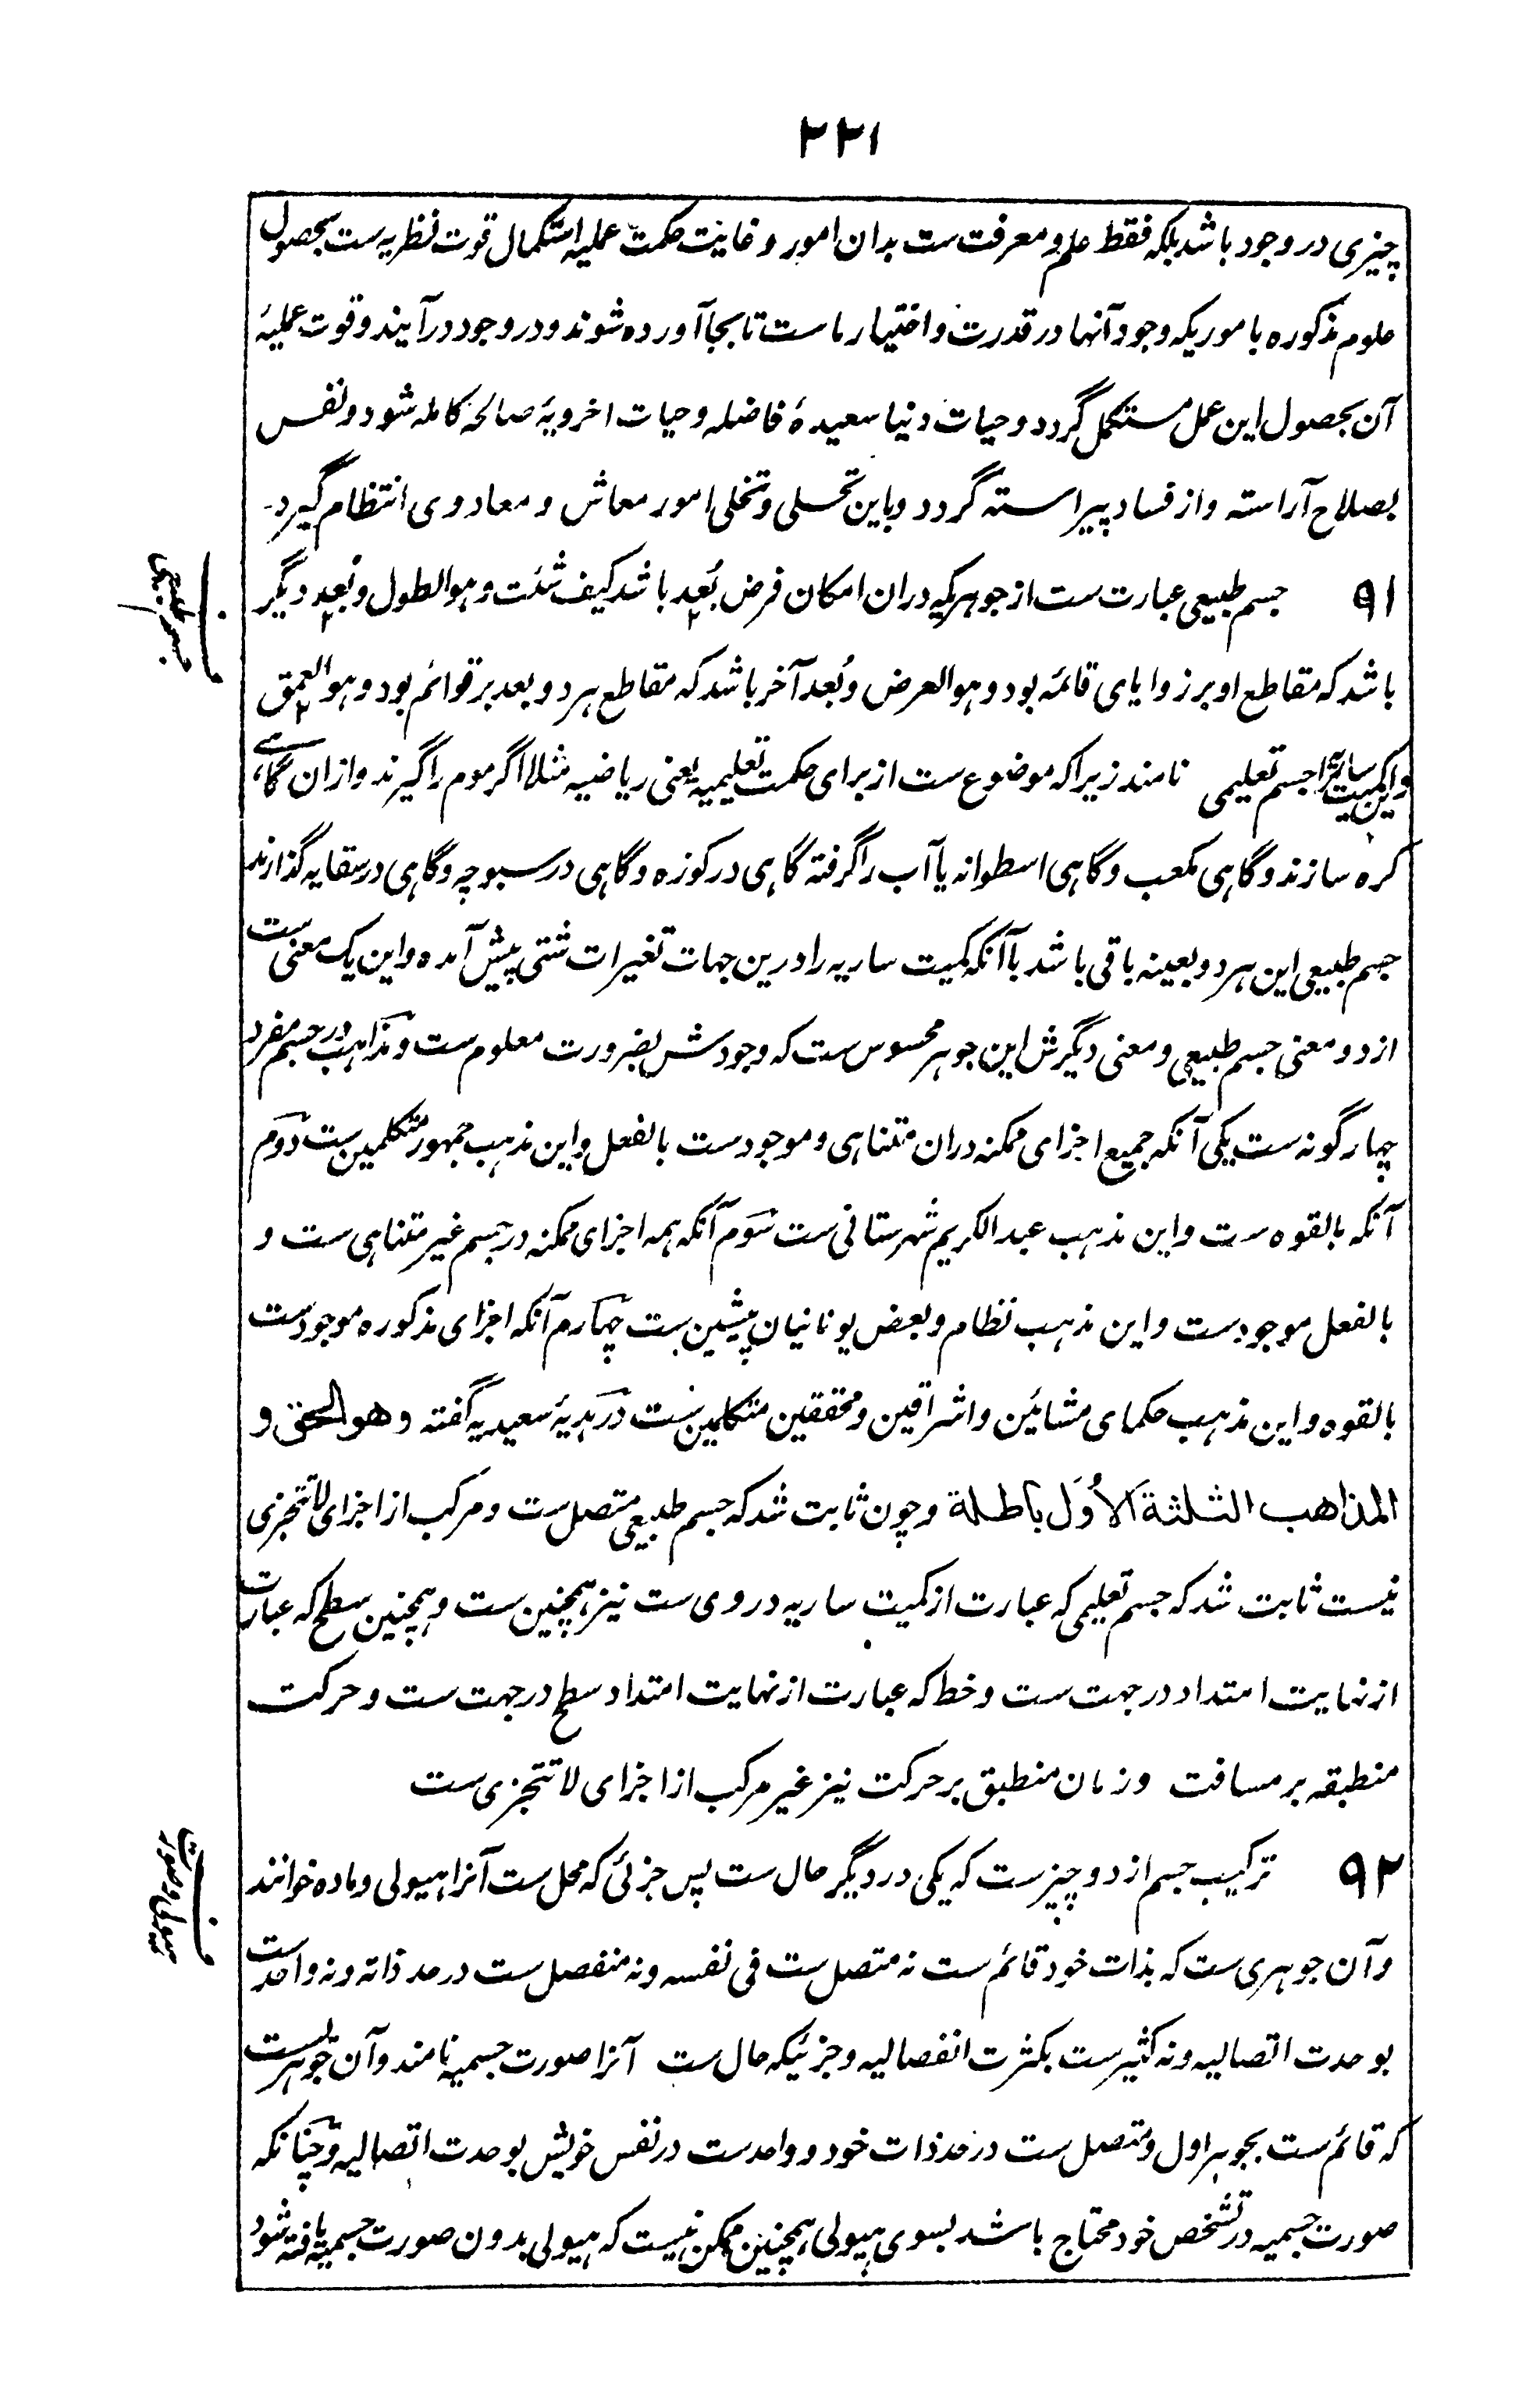 ۲۲۱
چیزی در وجود باشد بلکه فقط علم و معرفت ست بدان امور و غایت حکمت عملیه استکمال قوت نظریه ست بحصول
علوم مذکوره بامور یکه وجود آنها در قدرت و اختیار ماست تا بجا آورده شوند و در وجود در آیند و قوت عملیۂ
آن بحصول این عمل مستکمل گردد و حیات دنیا سعیدۂ فاضله و حیات اخرویۂ صالحه کامله شود و نفس
بصلاح آراسته و از فساد پیراسته گردد و باین تحلی و تخلی امور معاش و معاد وی انتظام گیرد۔
جسم طبیعی
۹۱ جسم طبیعی عبارت ست از جوهریکه دران امکان فرض بُعد باشد کیف شئت و هو الطول و بُعد دیگر
باشد که مقاطع او بر زوایای قائمه بود و هو العرض و بُعد آخر باشد که مقاطع هر دو بعد بر قوائم بود و هو العمق
و این کمیت ساریه را جسم تعلیمی نامند زیرا که موضوع ست از برای حکمت تعلیمیه یعنی ریاضیه مثلا اگر موم را گیرند و ازان گاہے
کره سازند و گاهی مکعب و گاهی اسطوانه یا آب را گرفته گاهی در کوزه و گاهی در سبوچه و گاهی در سقایه گذارند
جسم طبیعی این هر دو بعینه باقی باشد با آنکه کمیت ساریه را درین جهات تغیرات شتی پیش آمده و این یک معنی ست
از دو معنی جسم طبیعی و معنی دیگرش این جوهر محسوس ست که وجودش بضرورت معلوم ست و مذاهب در جسم مفرد
چهار گونه ست یکی آنکه جمیع اجزای ممکنه دران متناهی و موجود ست بالفعل و این مذهب جمهور متکلمین ست دوم
آنکه بالقوه ست و این مذهب عبد الکریم شهرستانی ست سوم آنکه همه اجزای ممکنه در جسم غیر متناهی ست و
بالفعل موجود ست و این مذهب نظام و بعض یونانیان پیشین ست چهارم آنکه اجزای مذکوره موجود ست
بالقوه و این مذهب حکمای مشائین و اشراقین و محققین متکلمین ست در هدیۂ سعیدیه گفته و هو الحق و
المذاهب الثلثة الأُوَل باطلة و چون ثابت شد که جسم طبیعی متصل ست و مرکب از اجزای لا تتجزی
نیست ثابت شد که جسم تعلیمی که عبارت از کمیت ساریه در وی ست نیز همچنین ست و همچنین سطح که عبارت
از نهایت امتداد در جهت ست و خط که عبارت از نهایت امتداد سطح در جهت ست و حرکت
منطبقه بر مسافت و زمان منطبق بر حرکت نیز غیر مرکب از اجزای لا تتجزی ست
هیولی و صورت
۹۲ ترکیب جسم از دو چیز ست که یکی در دیگر حال ست پس جزئی که محل ست آنرا هیولی و ماده خوانند
و آن جوهری ست که بذات خود قائم ست نه متصل ست فی نفسه و نه منفصل ست در حد ذاته و نه واحد ست
بوحدت اتصالیه و نه کثیر ست بکثرت انفصالیه و جزئیکه حال ست آنرا صورت جسمیه نامند و آن جوهریست
که قائم ست بجوهر اول و متصل ست در حد ذات خود و واحد ست در نفس خویش بوحدت اتصالیه و چنانکه
صورت جسمیه در تشخص خود محتاج باشد بسوی هیولی همچنین ممکن نیست که هیولی بدون صورت جسمیه یافته شود